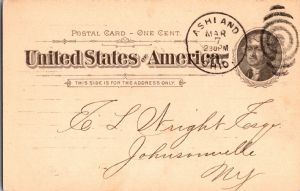 POSTAL CARD - ONE CENT.
United States of America.
THIS SIDE IS FOR THE ADDRESS ONLY.
ASHLAND
MAR
7
230PM
T. L. Wright Esqr.
Johnsonville
NY